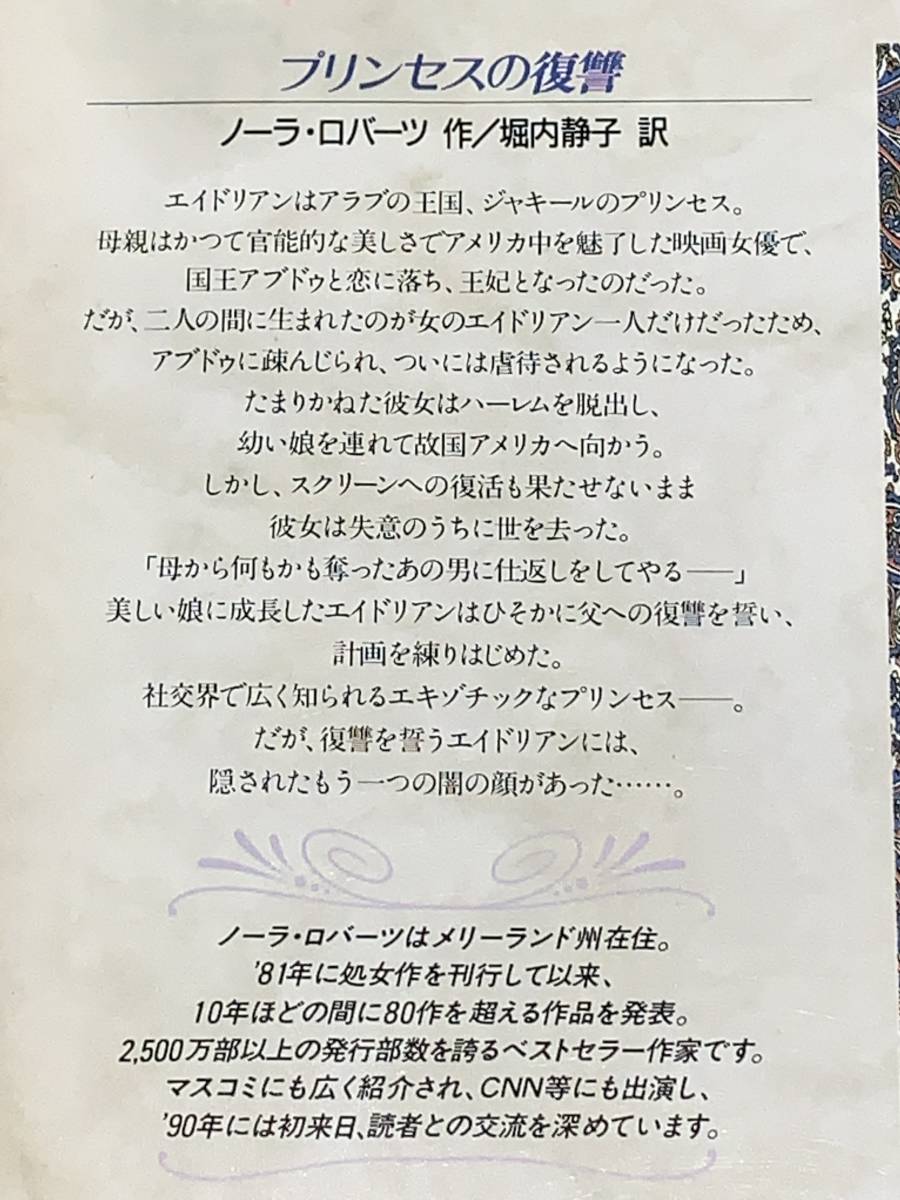 プリンセスの復讐
ノーラ・ロバーツ 作／堀内静子 訳
エイドリアンはアラブの王国、ジャキールのプリンセス。
母親はかつて官能的な美しさでアメリカ中を魅了した映画女優で、
国王アブドゥと恋に落ち、王妃となったのだった。
だが、二人の間に生まれたのが女のエイドリアン一人だけだったため、
アブドゥに疎んじられ、ついには虐待されるようになった。
たまりかねた彼女はハーレムを脱出し、
幼い娘を連れて故国アメリカへ向かう。
しかし、スクリーンへの復活も果たせないまま
彼女は失意のうちに世を去った。
「母から何もかも奪ったあの男に仕返しをしてやる――」
美しい娘に成長したエイドリアンはひそかに父への復讐を誓い、
計画を練りはじめた。
社交界で広く知られるエキゾチックなプリンセス――。
だが、復讐を誓うエイドリアンには、
隠されたもう一つの闇の顔があった……。
ノーラ・ロバーツはメリーランド州在住。
'81年に処女作を刊行して以来、
10年ほどの間に80作を超える作品を発表。
2,500万部以上の発行部数を誇るベストセラー作家です。
マスコミにも広く紹介され、CNN等にも出演し、
'90年には初来日、読者との交流を深めています。